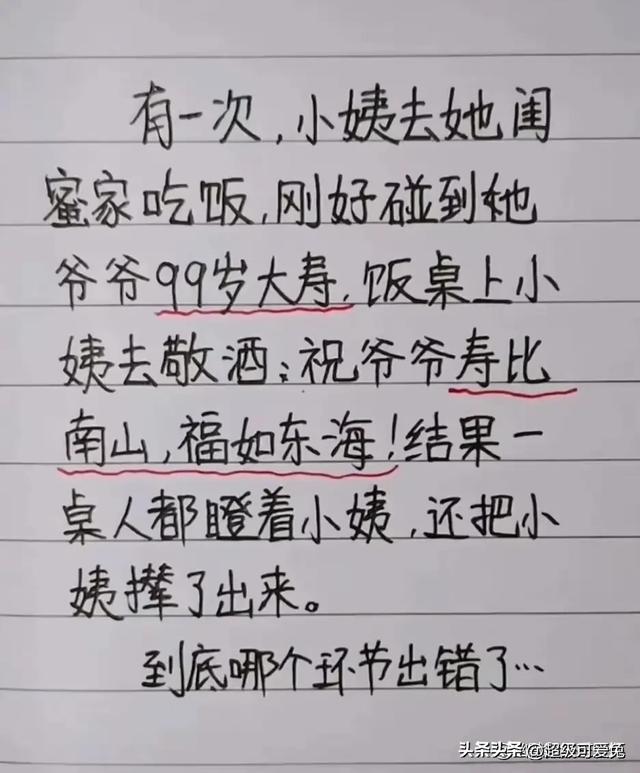 有一次,小姨去她闺
蜜家吃饭,刚好碰到她
爷爷99岁大寿,饭桌上小
姨去敬酒:祝爷爷寿比
南山,福如东海!结果一
桌人都瞪着小姨,还把小
姨撵了出来。
到底哪个环节出错了…
头条头条 @超级可爱兔